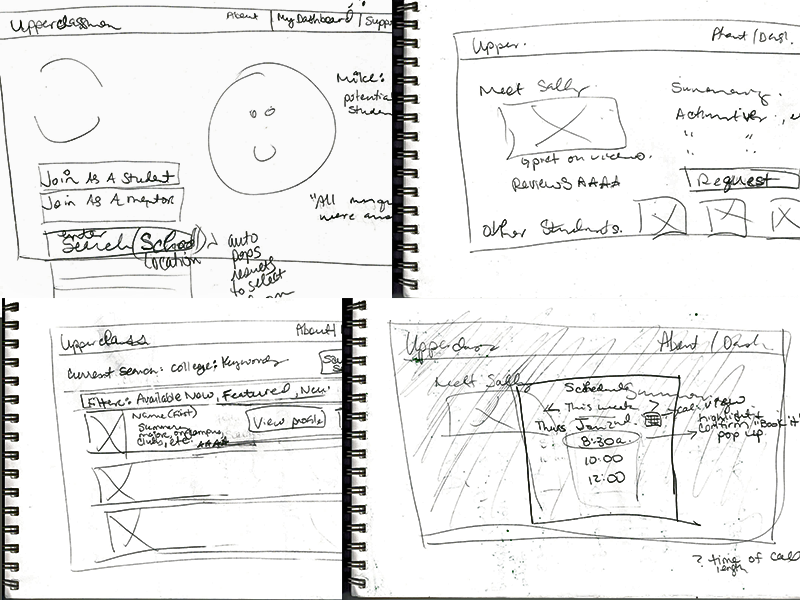 Upperclassman About | My Dashboard | Supp
Mike:
potentia
Studen
Join As A Student
Join As A mentor
enter
Search (School)
Location
auto
pops
results
to select
"All
were
Upper. About / Das
Meet Sally
Summary.
Reviews AAAA
Request
Other Students.
Upperclass About |
Current search: college: Keywords
Filters: Available Now, Featured, New
Name (First)
Summary
major, on campus,
clubs, etc. AAAA
View profile
Upperclass About / Dash
Meet Sally
Schedule
Summary
This week
Thurs Jan 2nd
8:30a
10:00
12:00
cal. view
highlight +
confirm "Book it"
pop up
? time of call
length